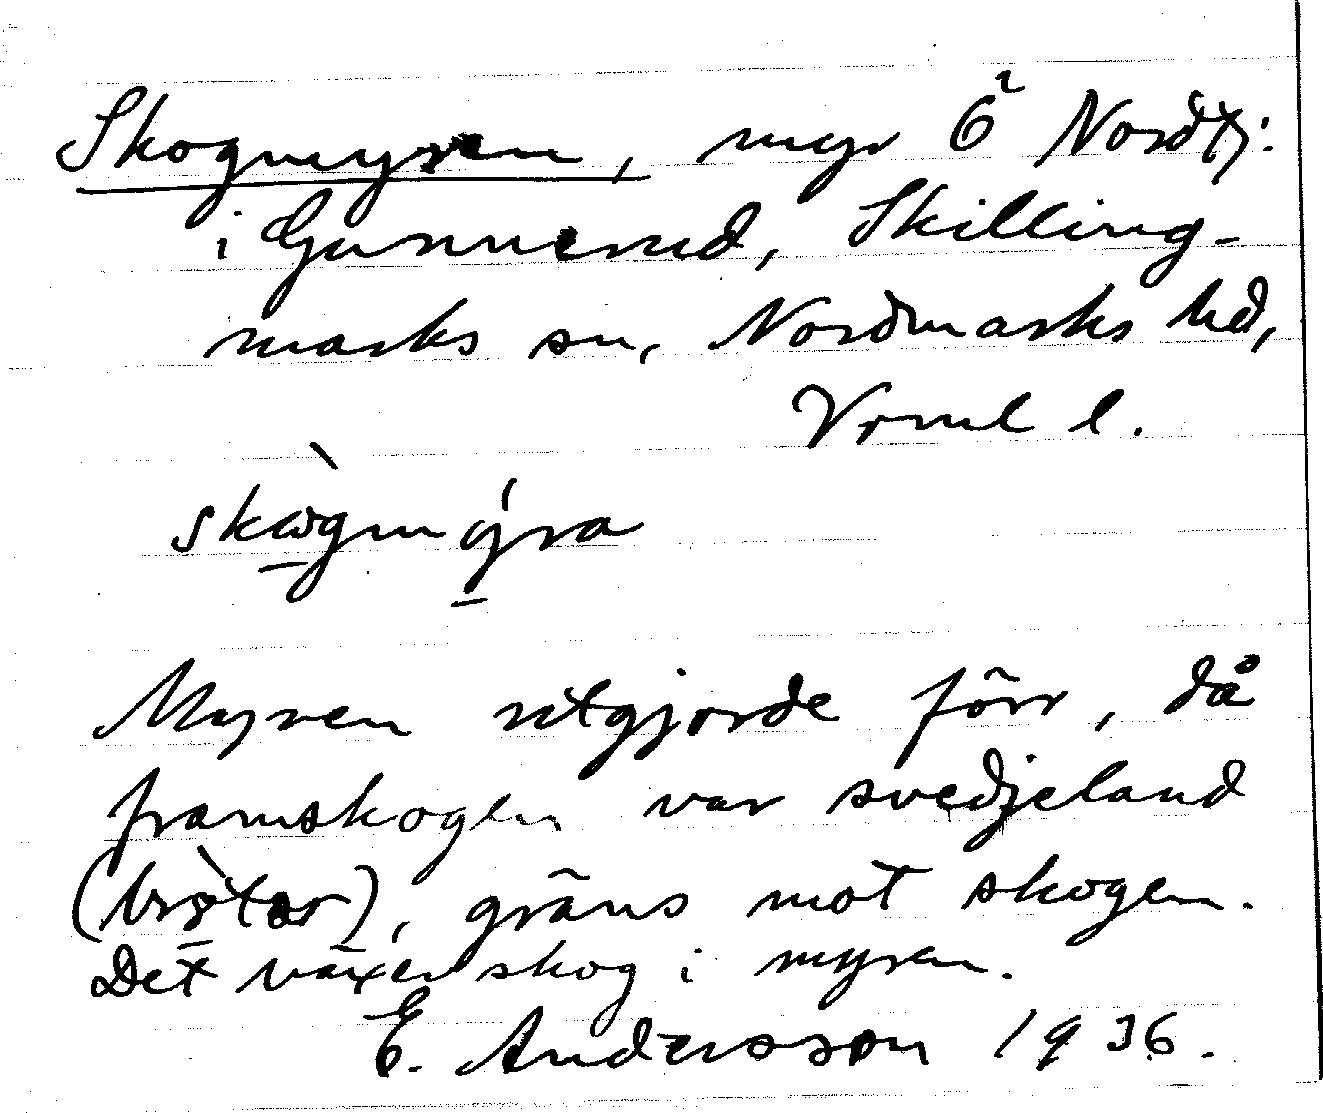 Skogmyren, myr Ö Nordtj:
i Gunnerud, Skilling-
marks sn, Nordmarks hd,
Vrml l.
skògmy̗ra
Myren utgjorde förr, då
framskogen var svedjeland
gräns mot skogen.
Det växer skog i myren.
E. Andersson 1936.